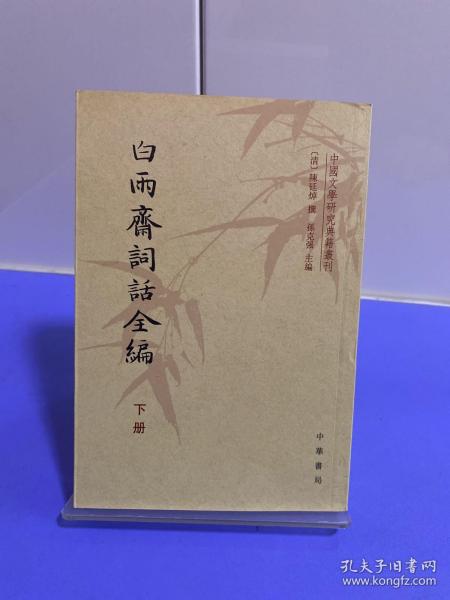 中國文學研究典籍叢刊
〔清〕陳廷焯 撰 孫克強 主編
白雨齋詞話全編
下册
中華書局
孔夫子旧书网
www.kongfz.com